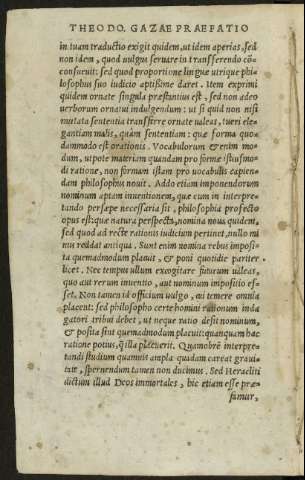 THEODO. GAZAE PRAEFATIO
in tuam traductio exigit quidem, ut idem aperias, sed
non idem, quod uulgus seruare in transferendo cō-
sueuit: sed quod proportione linguæ utrique phi-
losophus suo iudicio aptißime daret. Item exprimi
quidem ornate singula præstantius est, sed non adeo
uerborum ornatui indulgendum: ut si quid non nisi
mutata sententia transferre ornate ualeas, tueri ele-
gantiam malis, quàm sententiam: quæ forma quo-
dammodo est orationis. Vocabulorum & enim mo-
dum, utpote materiam quandam pro formæ istiusmo-
di ratione, non formam istam pro uocabulis capien-
dam philosophus nouit. Addo etiam imponendorum
nominum aptam inuentionem, quæ cum in interpre-
tando persæpe necessaria sit, philosophiæ profecto
opus est: quæ natura perspecta, nomina noua quidem,
sed quod ad recte rationis iudicium pertinet, nullo mi
nus reddat antiqua. Sunt enim nomina rebus imposi-
ta quemadmodum placuit, & poni quotidie pariter
licet. Nec tempus ullum excogitare futurum ualeas,
quo aut rerum inuentio, aut nominum impositio es-
set. Non tamen id officium uulgo, aut temere omnia
placent: sed philosopho certe homini rationum inda
gatori tribui debet, ut neque ratio desit nominum,
& posita sint quemadmodum placuit: quanquam hac
ratione potius, q̃ illa placuerit. Quamobrē interpre-
tandi studium quamuis ampla quadam careat graui-
tate, spernendum tamen non ducimus. Sed Heracliti
dictum illud Deos immortales, hic etiam esse præ-
sumur,